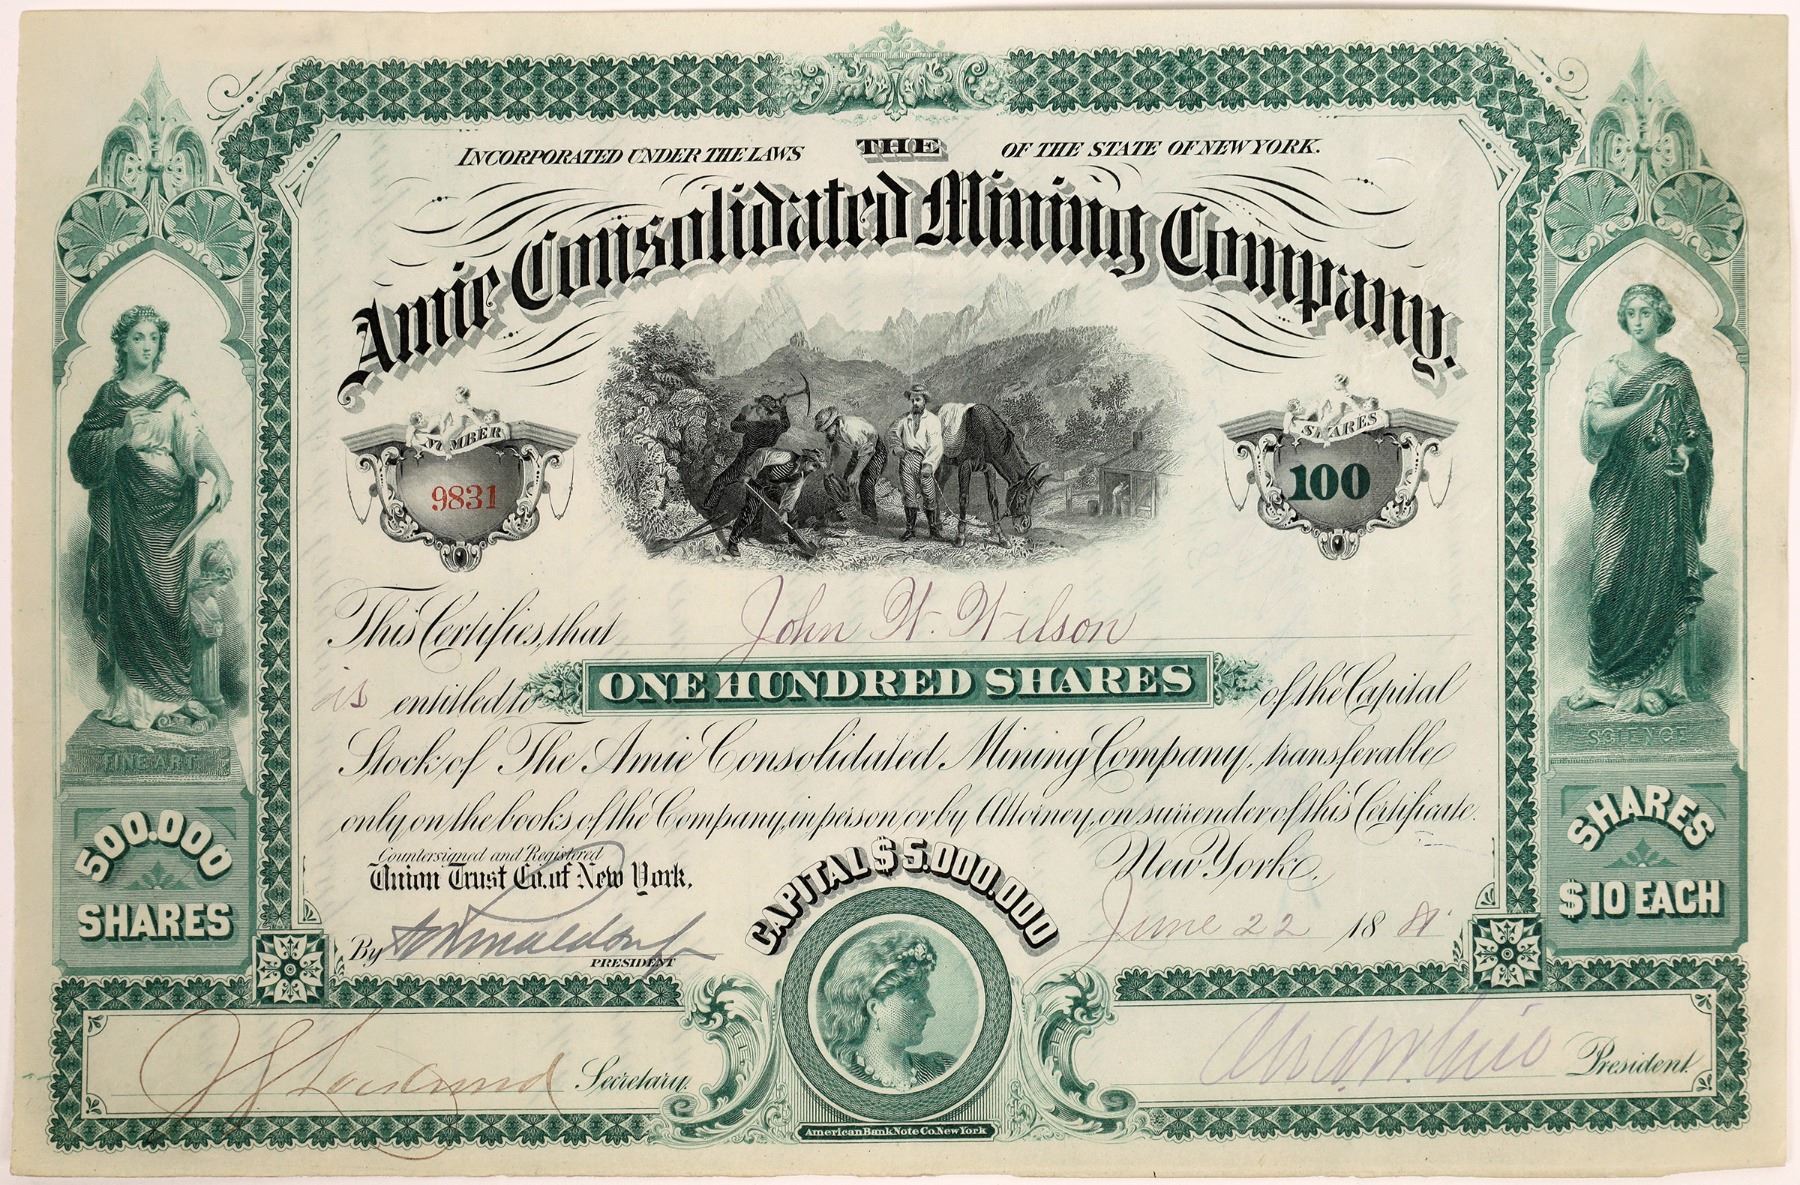 INCORPORATED UNDER THE LAWS THE OF THE STATE OF NEW YORK.
Amie Consolidated Mining Company.
NUMBER
9831
SHARES
100
This Certifies, that John W. Wilson
is entitled to ONE HUNDRED SHARES of the Capital
Stock of The Amie Consolidated Mining Company, transferable
only on the books of the Company, in person or by Attorney, on surrender of this Certificate.
FINE ART
SCIENCE
500.000
SHARES
SHARES
$10 EACH
Countersigned and Registered
Union Trust Co. of New York,
By
PRESIDENT
CAPITAL $5.000.000
New York,
June 22 18
Secretary.
President.
American Bank Note Co. New York